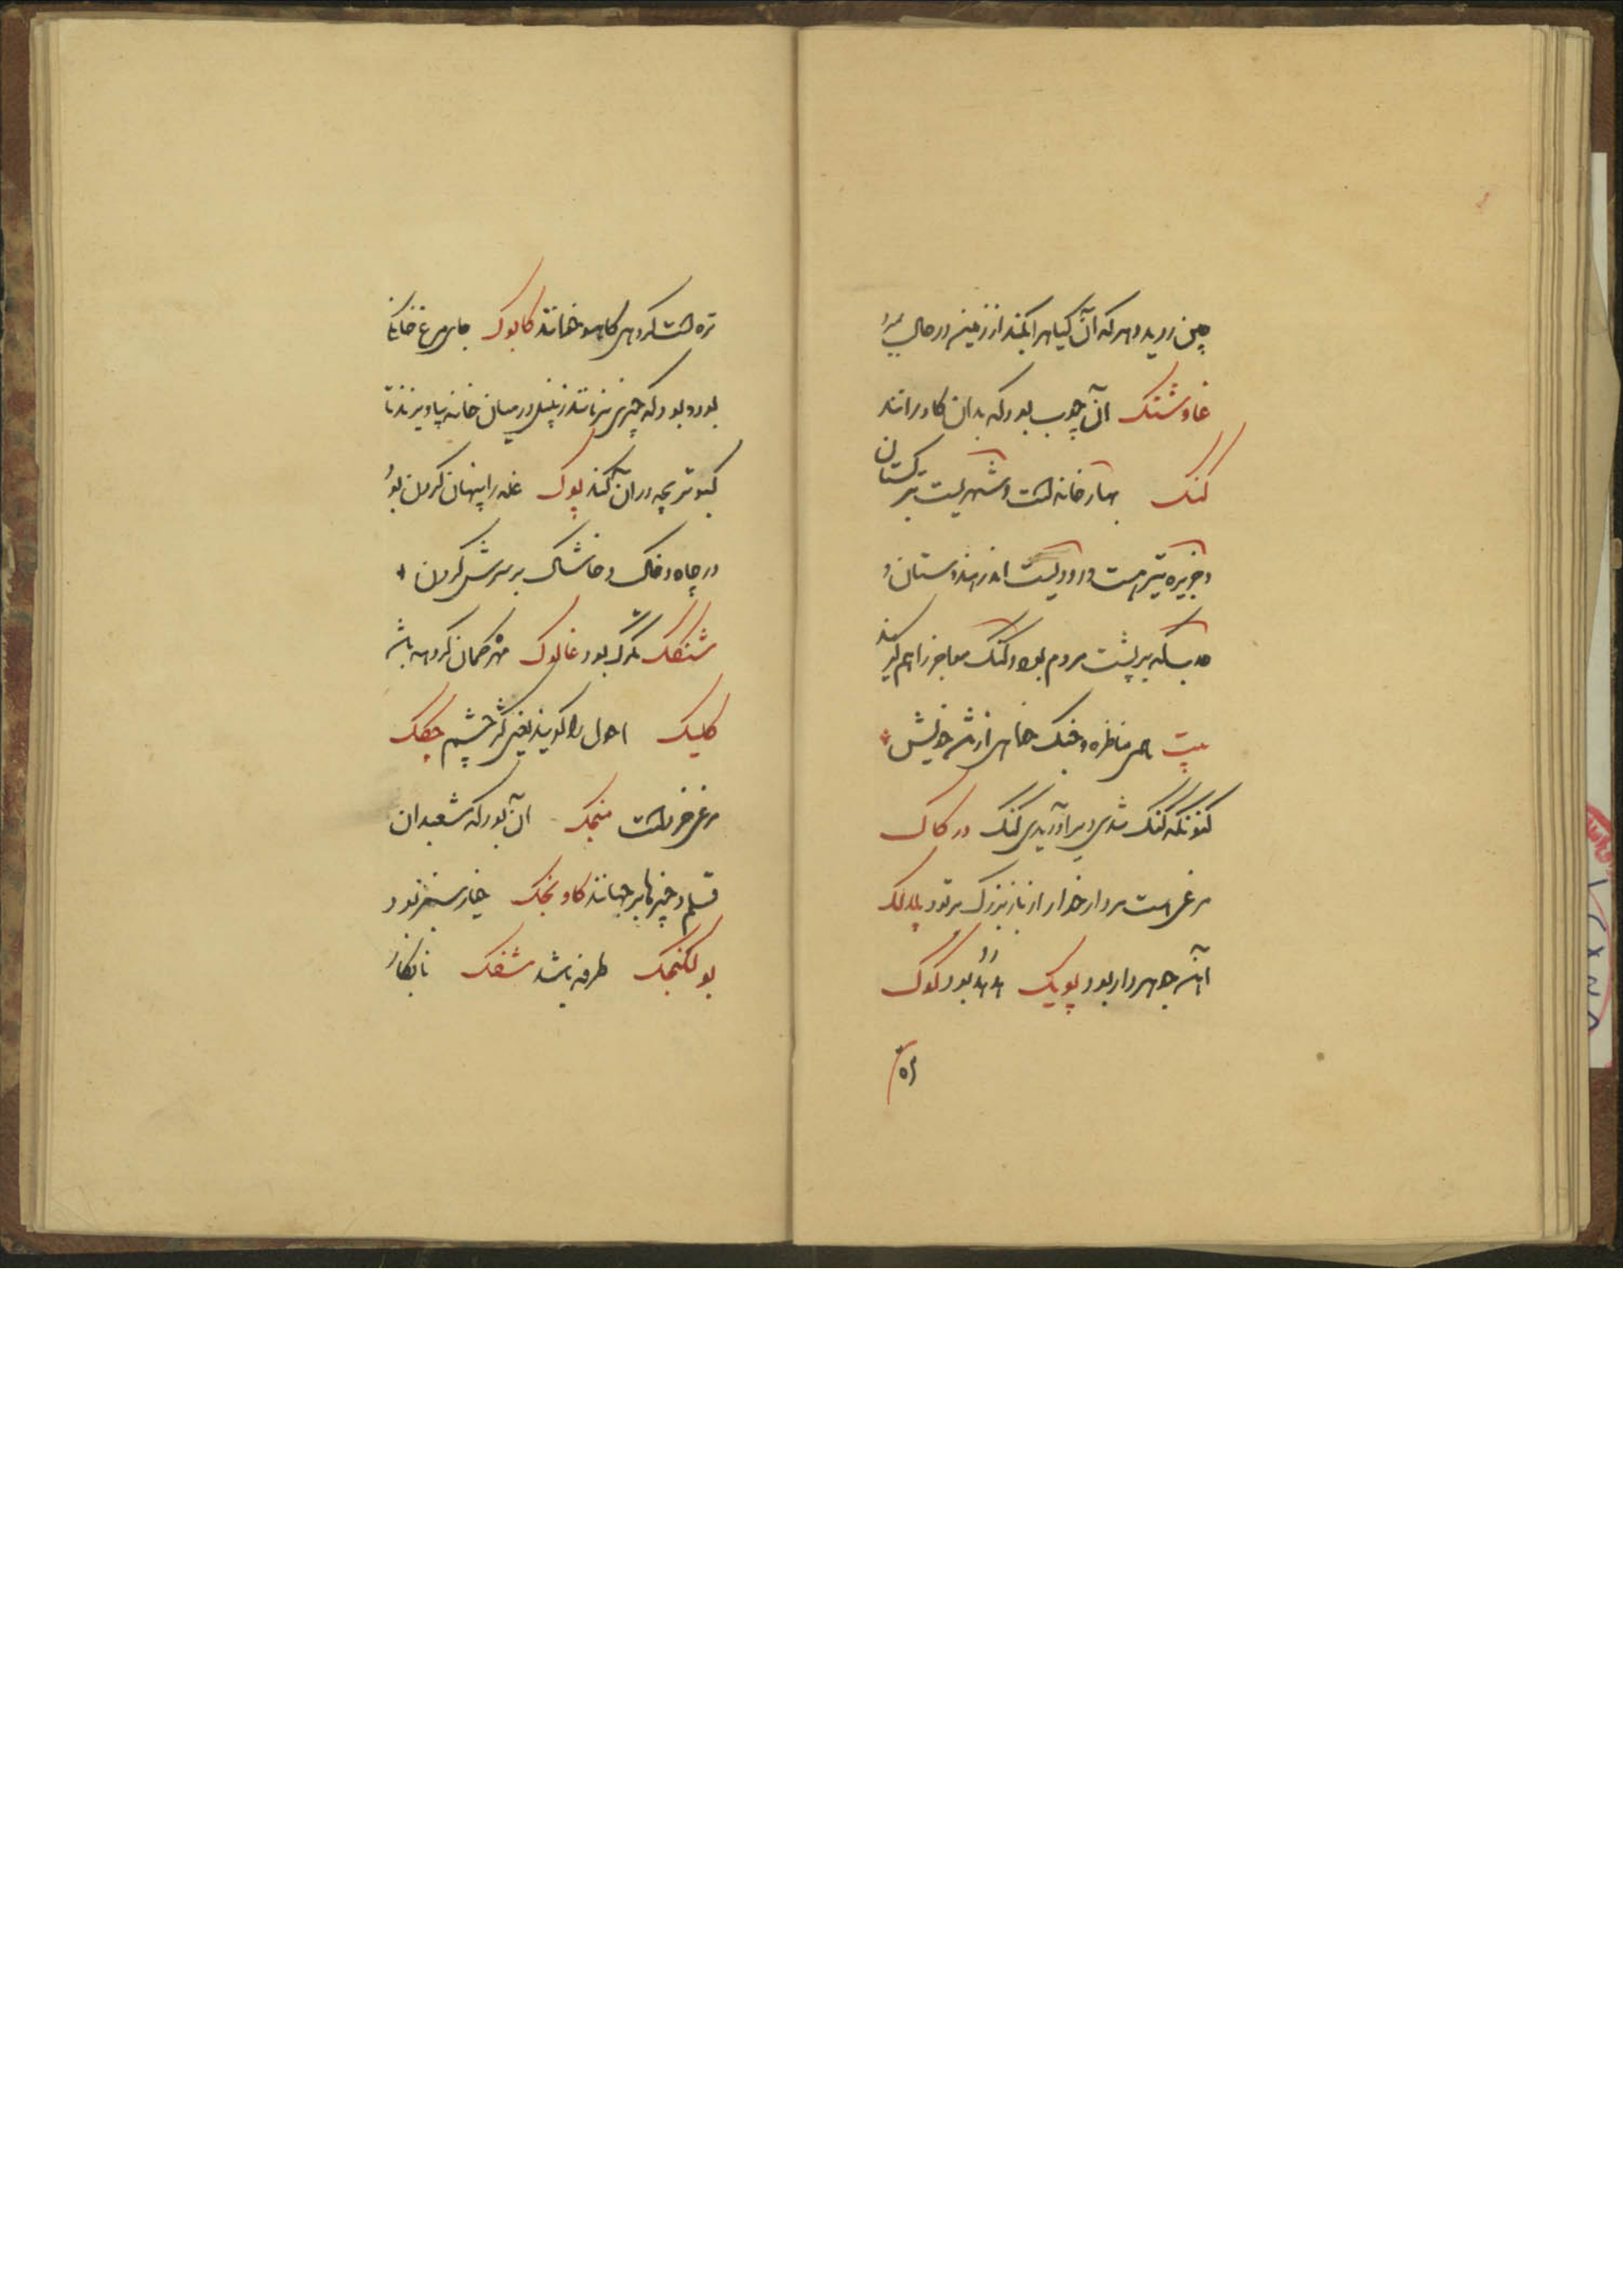 چین روید و هر که آن گیاهرا بکند از زمین در حال بمیرد
غاوشنک آن چوب بود که بدان کاو رانند
کنک بهار خانه است و شهریست بترکستان
و جزیره نیز هست و رودیست اندر هندوستان و
بسکه بر پشت مردم بود و کنک معاجز را هم کویند
بیت مناظره و جنک خویش
کنونکه کنک شدی و برآوریدی کنک در کاک
مرغی است مردار خوار از باز بزرک تر بود بلالک
آهن جوهردار بود پوپک هدهد بود کوک
تره
تره است کروهی کاهو خوانند کابوک جای مرغ خانکی
بود و بود که چیزی مانند زنبیل در میان خانه بیاویزند تا
کبوتر بچه در آن کند پوک غله را پنهان کردن بود
در چاه و خاک و خاشاک بر سرش کردن
تکرک بود غالوک مهره کمان کروهه باشد
کلیک احول را کویند یعنی کژ چشم جکک
مرغی خرد است منجک آن بود که مشعبدان
قلم و چیزها برجهانند کاونجک خیار سبز بود
بولکنجک طرفه باشد شفک نابکار